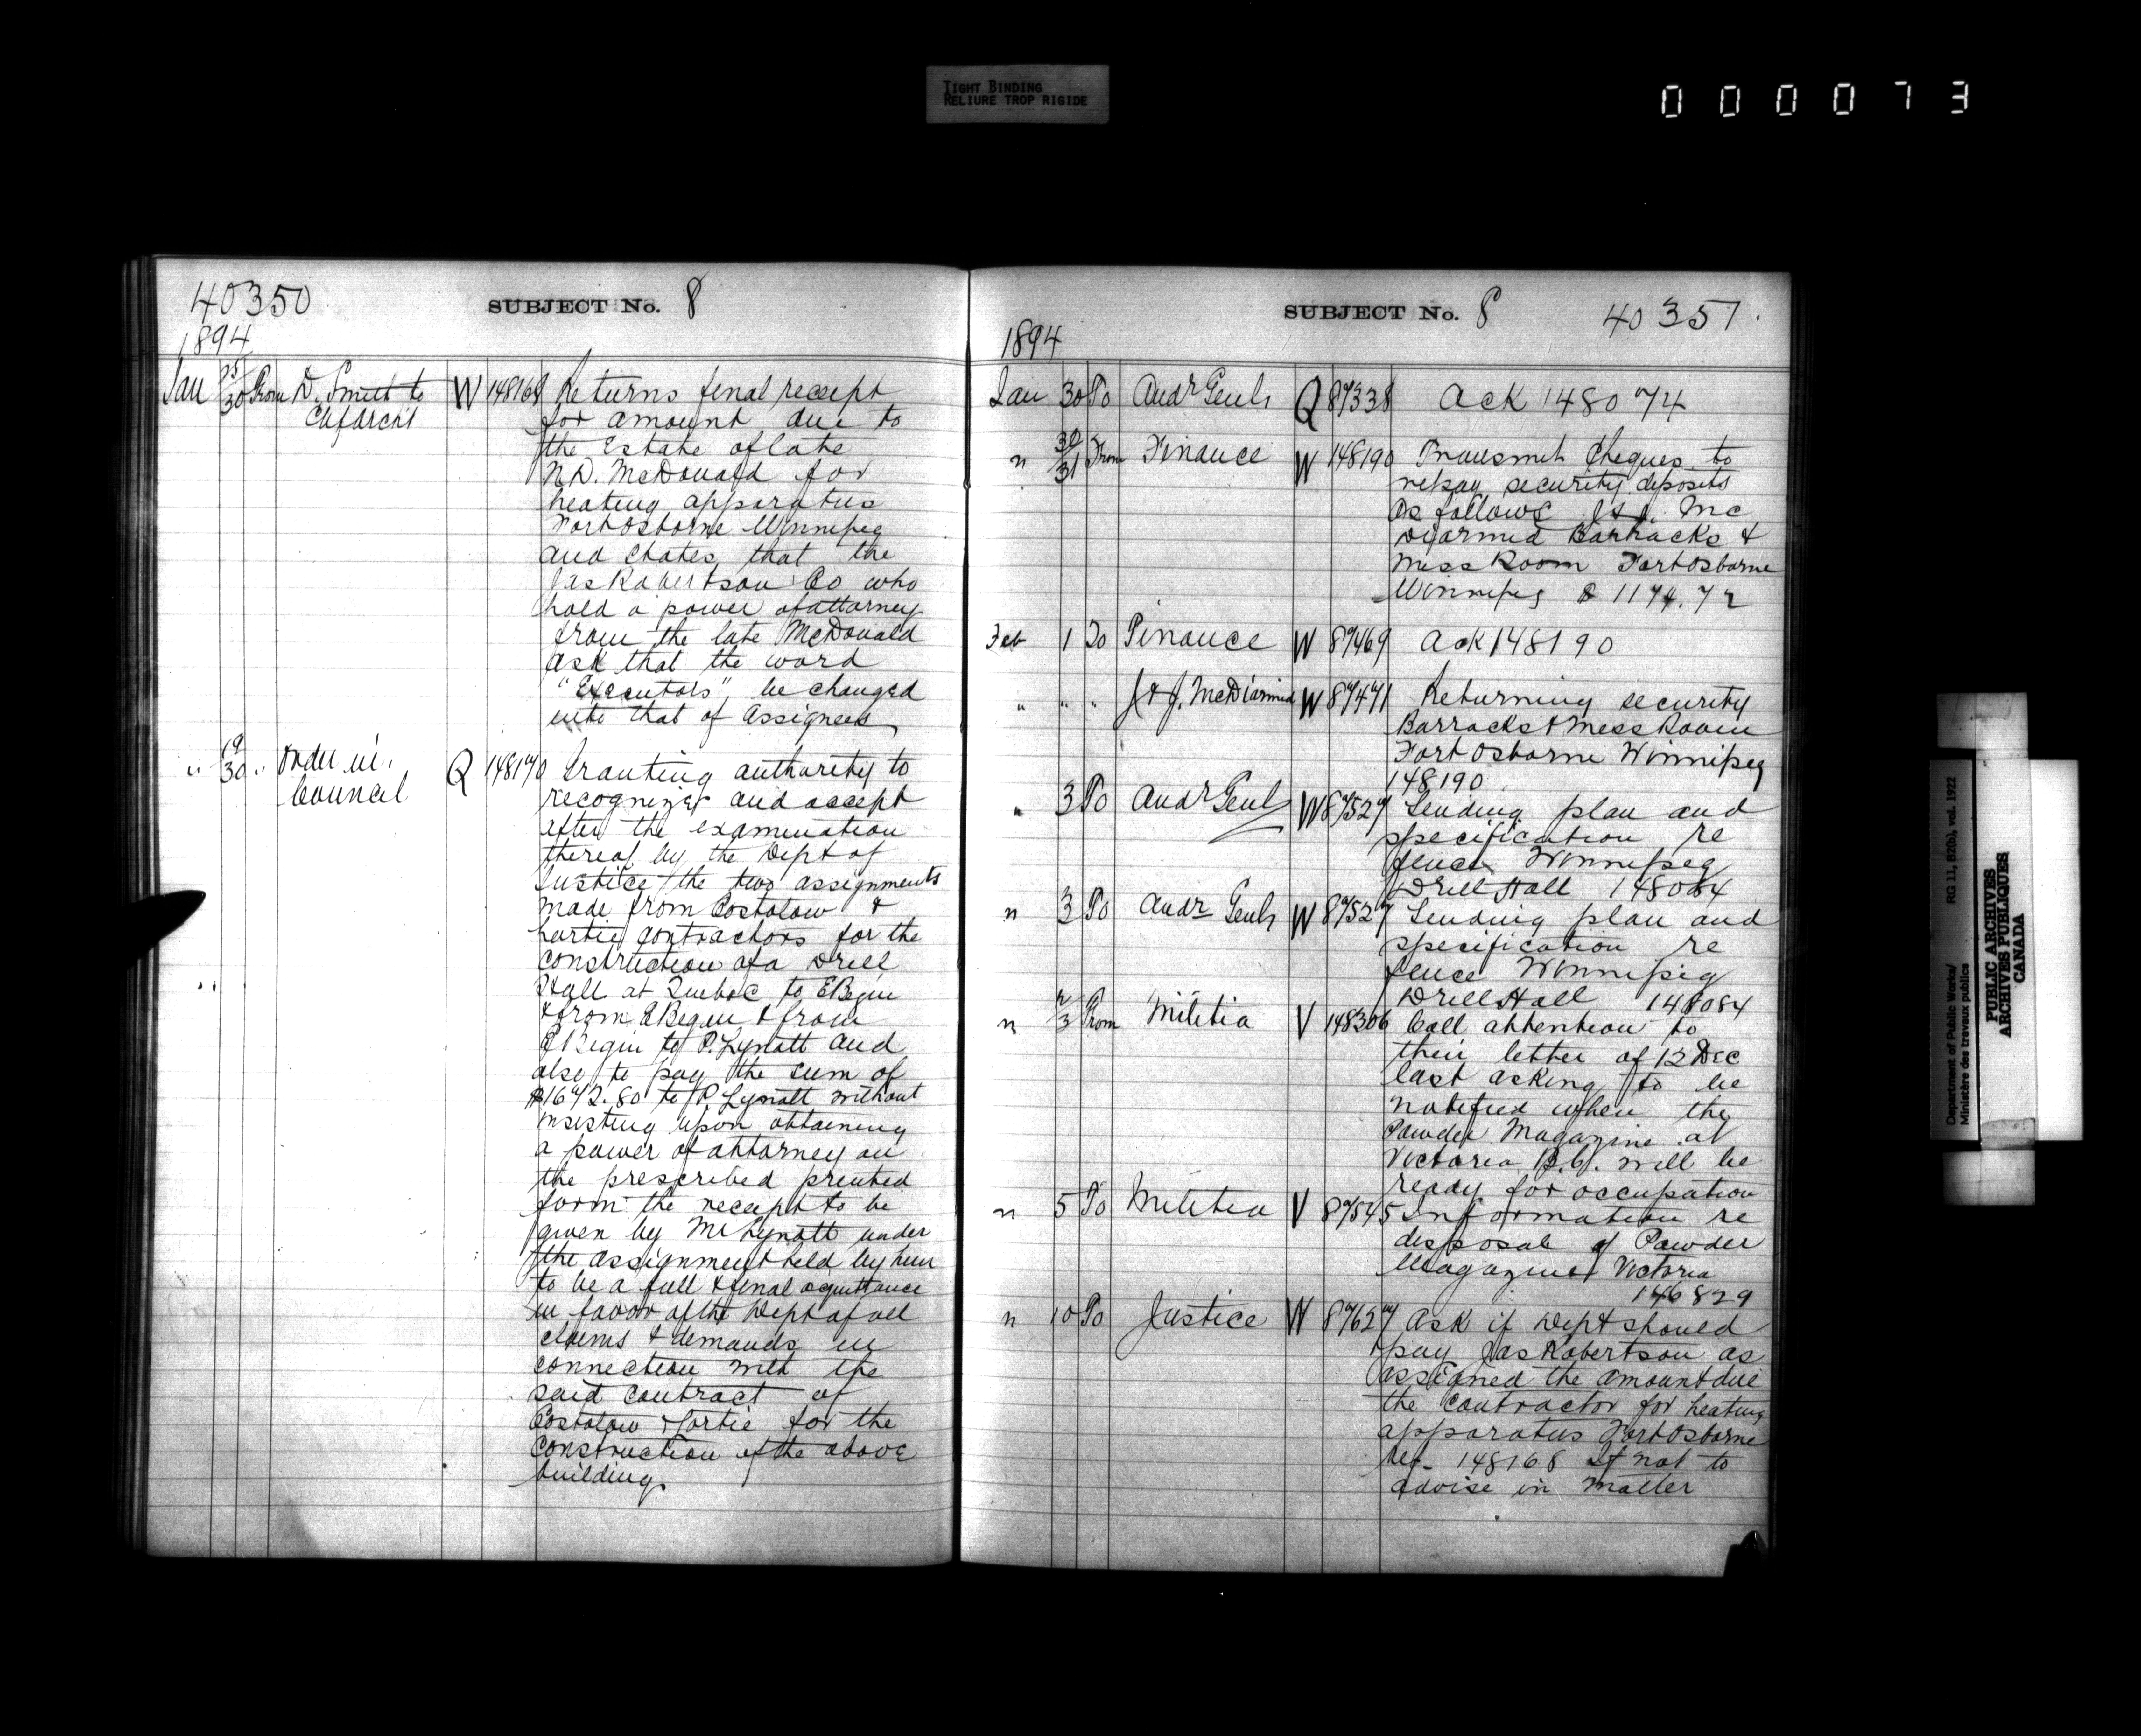 TIGHT BINDING
RELIURE TROP RIGIDE
000073
40350
SUBJECT No. 8
1894
Jan 25/30 From D. Smith to W 148168 Returns final receipt
for amount due to
the Estate of late
N.D. McDonald for
heating apparatus
Fort Osborne Winnipeg
and states that the
Jas Robertson Co who
hold a power of attorney
from the late McDonald
ask that the word
"Executors" be changed
into that of Assignees
" 19/30 " Order in Q 148170 Granting authority to
Council recognize and accept
after the examination
thereof by the Dept of
Justice the two assignments
made from Costolow &
Fortie contractors for the
construction of a Drill
Hall at Quebec to E Begin
& from E Begin & from
E Begin to P. Lynott and
also to pay the sum of
$1672.80 to P. Lynott without
insisting upon obtaining
a power of attorney on
the prescribed printed
form the receipt to be
given by Mr Lynott under
the assignment held by him
to be a full & final acquittance
in favor of the Dept of all
claims & demands in
connection with the
said contract of
Costolow & Fortie for the
construction of the above
building.
SUBJECT No. 8
40351.
1894
Jan 30 To Audr Genl Q 87338 Ack 148074
" 30/31 From Finance W 148190 Transmit Cheques to
repay security deposits
as follows J & J. Mc
Diarmid Barracks &
Mess Room Fort Osborne
Winnipeg $1174.72
Feb 1 To Finance W 87469 Ack 148190
" " " J & J. McDiarmid W 87471 Returning security
Barracks & Mess Room
Fort Osborne Winnipeg
148190
" 3 To Audr Genl W 87527 Sending plan and
specification re
fence Winnipeg
Drill Hall 148084
" 3 To Audr Genl W 87527 Sending plan and
specification re
fence Winnipeg
Drill Hall 148084
" 2/3 From Militia V 148306 Call attention to
their letter of 12 Dec
last asking to be
notified when the
Powder Magazine at
Victoria B.C. will be
ready for occupation
" 5 To Militia V 87545 Information re
disposal of Powder
Magazine Victoria
146829
" 10 To Justice W 87627 Ask if Dept should
pay Jas Robertson as
assigned the amount due
the contractor for heating
apparatus Fort Osborne
Ref. 148168 If not to
advise in matter
Department of Public Works/
Ministère des travaux publics
RG 11, B2(b), vol. 1922
PUBLIC ARCHIVES
ARCHIVES PUBLIQUES
CANADA